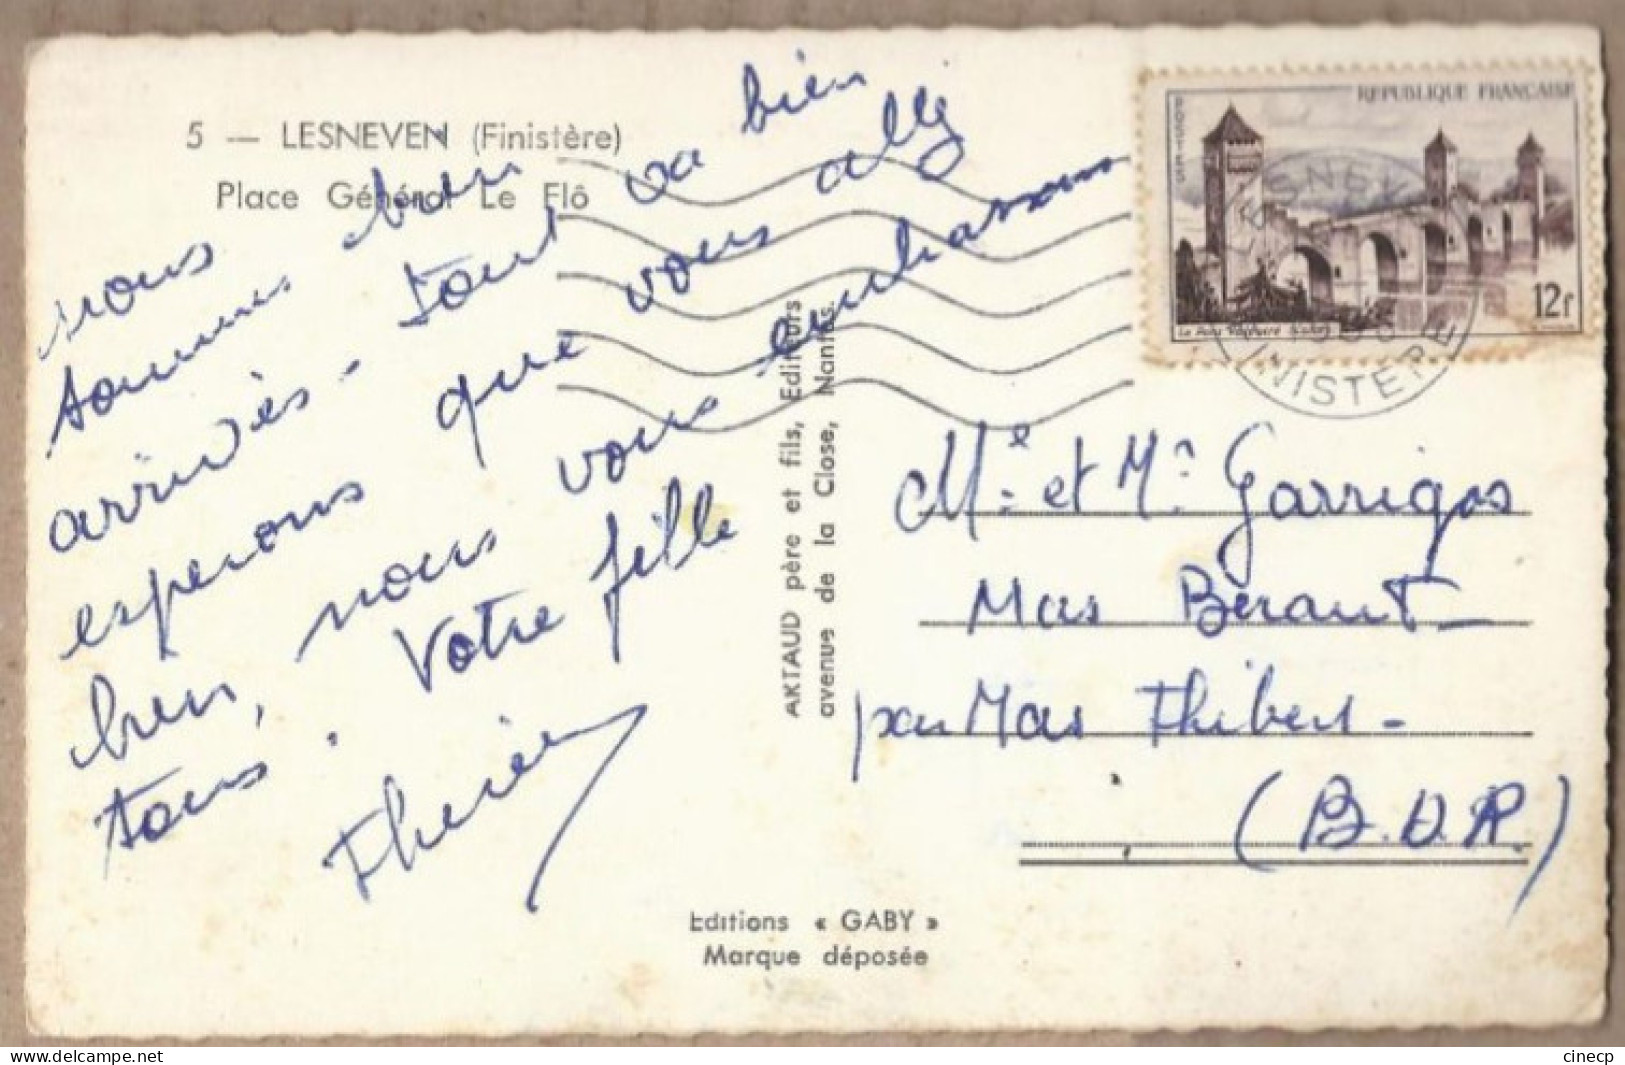 5 — LESNEVEN (Finistère)
Place Général Le Flô
nous
sommes bien
arrivés - tout va bien
esperons que vous allez
bien, nous vous embrassons
tous. Votre fille
ARTAUD père et fils, Editeurs
avenue de la Close, Nantes.
REPUBLIQUE FRANÇAISE
12f
LESNEVEN
FINISTÈRE
Me et Mr Garrigos
Mas Beraut -
par Mas Thibert -
(B.D.R.)
Editions « GABY »
Marque déposée
www.delcampe.net
cinecp